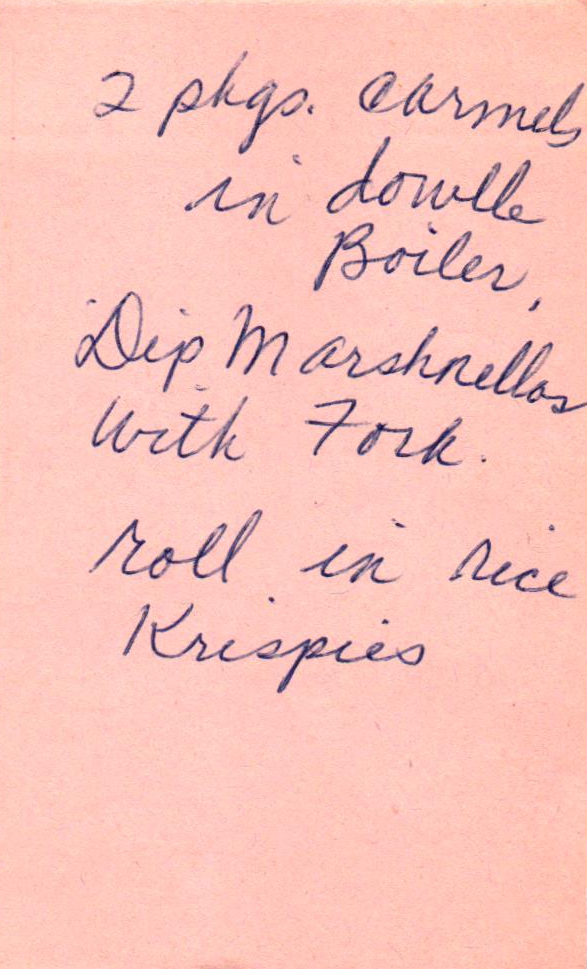 2 pkgs. carmels
in double
Boiler,
Dip Marshmellos
with Fork.
roll in rice
Krispies